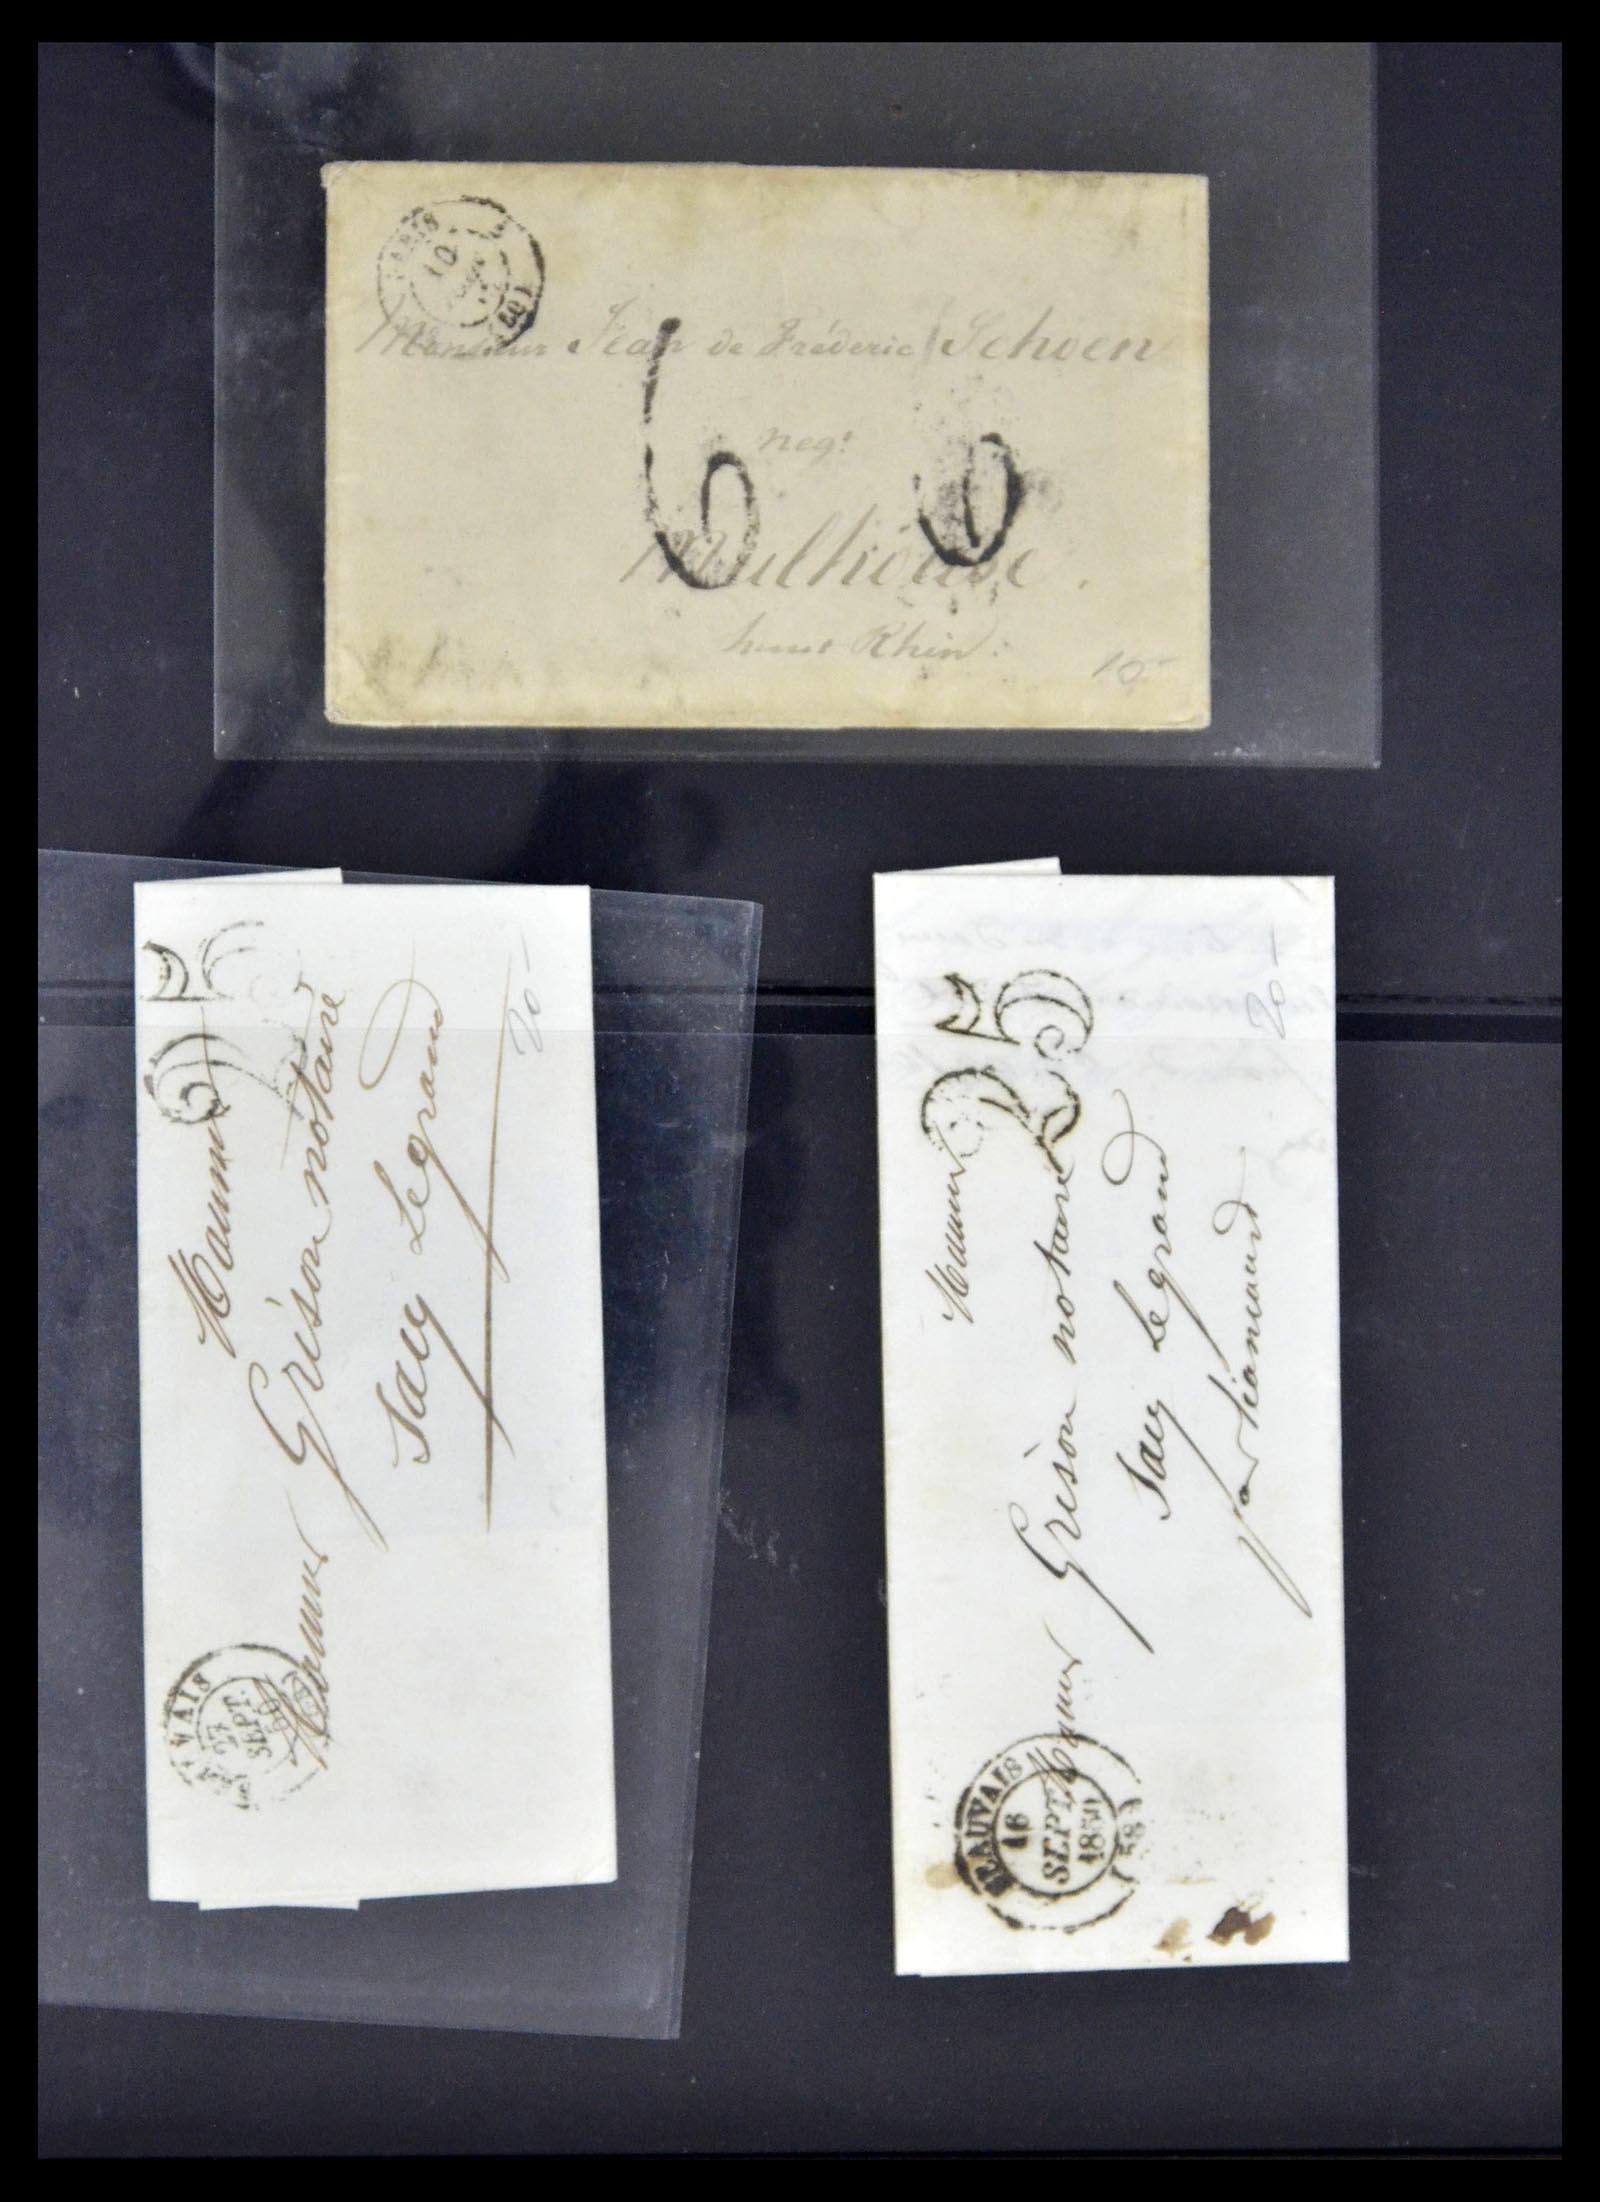 PARIS
10
(60)
Monsieur Jean de Fréderic Schoen
negt
6
Mulhouse
haut Rhin.
10-
25
Monsieur
Monsieur Grison notaire
Sacy Le grand
20-
27
SEPT.
25
Monsieur
Monsieur Grison notaire
Sacy Le grand
par Liancourt
20-
BEAUVAIS
16
SEPT.
1850
(58)